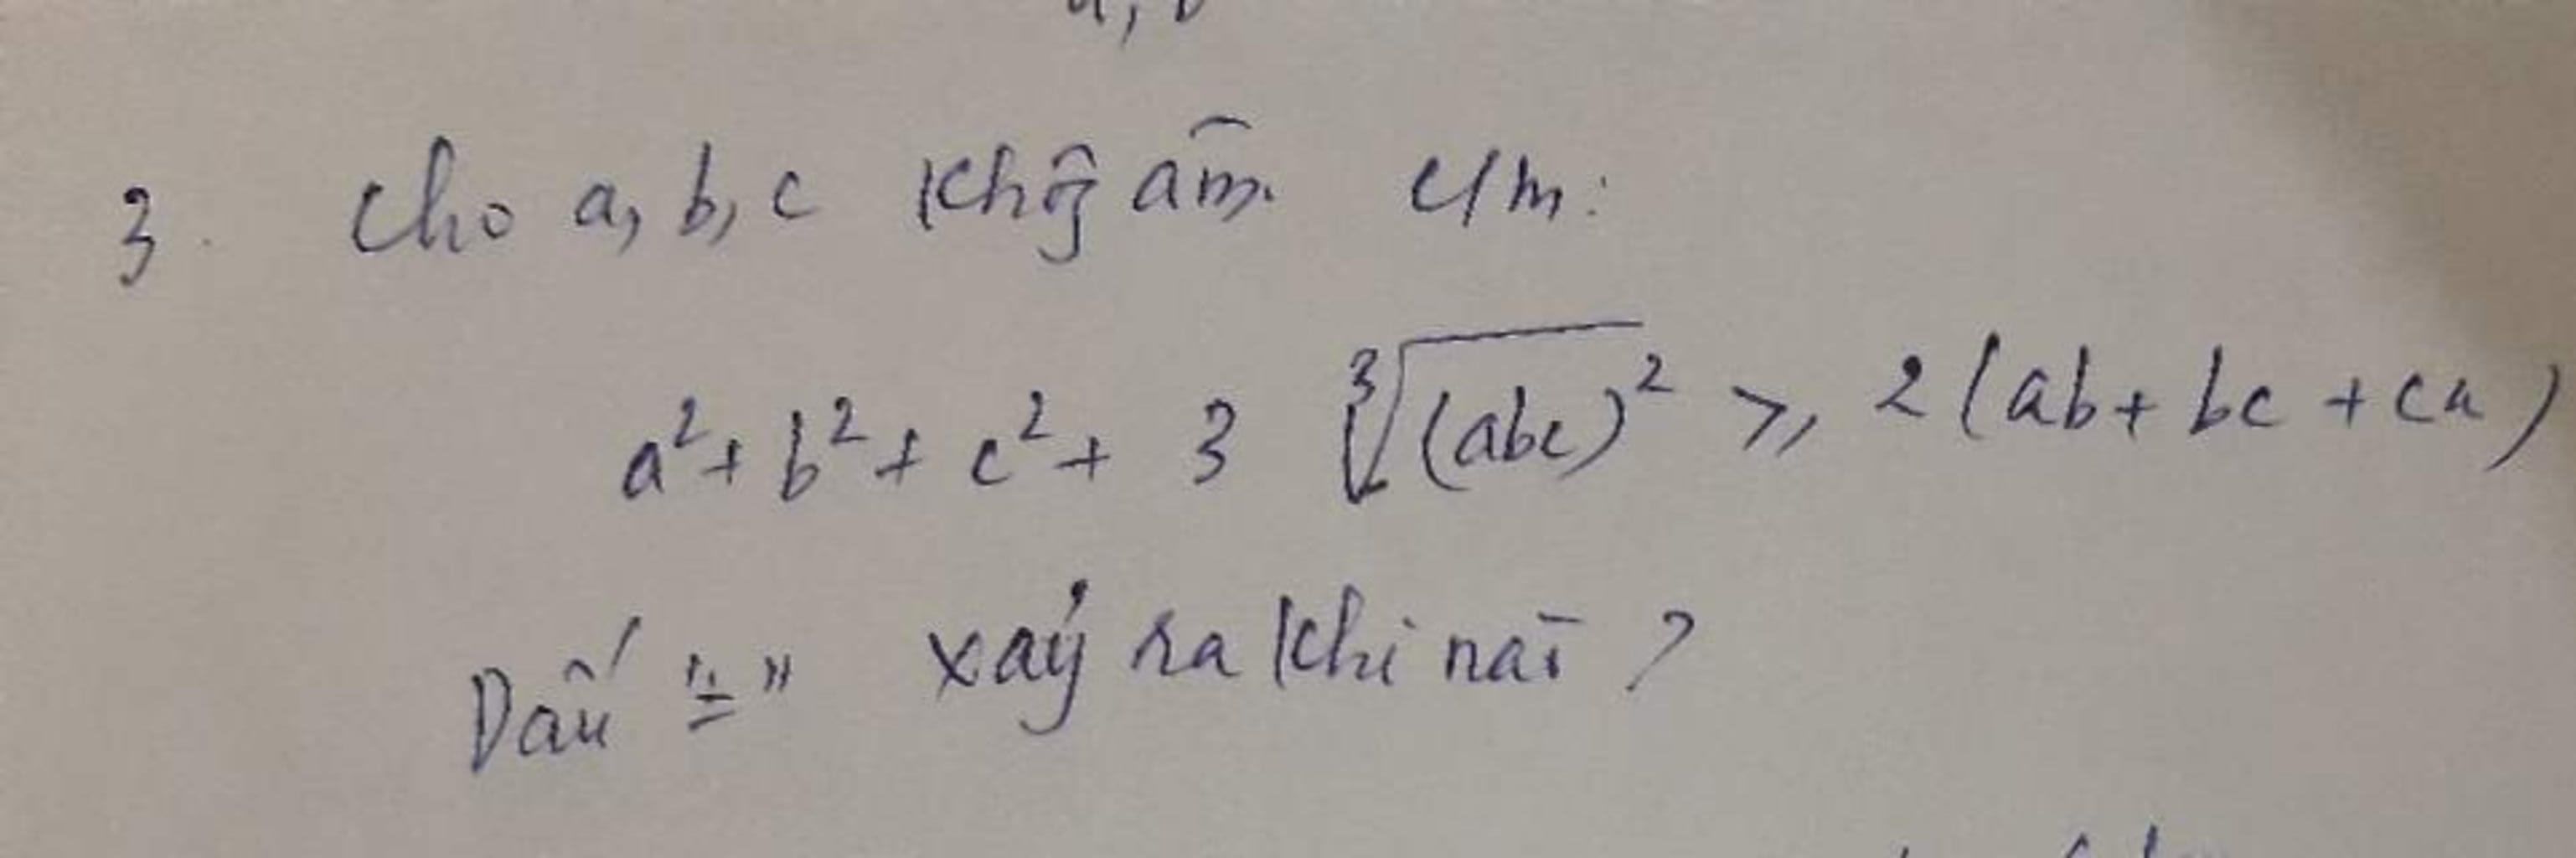 a, b
3. Cho a, b, c khôg âm. C/m:
a² + b² + c² + 3 ∛(abc)² ⩾ 2(ab + bc + ca)
Dấu "=" xảy ra khi nào ?